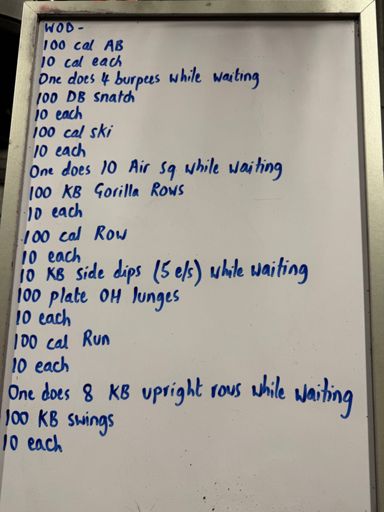 WOD-
100 cal AB
10 cal each
One does 4 burpees while waiting
100 DB snatch
10 each
100 cal ski
10 each
One does 10 Air sq while waiting
100 KB Gorilla Rows
10 each
100 cal Row
10 each
10 KB side dips (5 e/s) while waiting
100 plate OH lunges
10 each
100 cal Run
10 each
One does 8 KB upright rows while waiting
100 KB swings
10 each